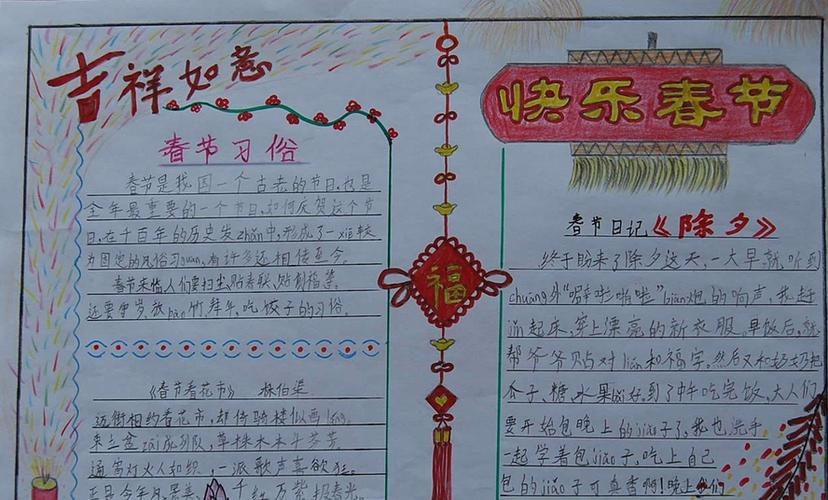 吉祥如意
春节习俗
春节是我国一个古老的节日,也是
全年最重要的一个节日,如何庆贺这个节
日,在千百年的历史发zhǎn中,形成了一xiē较
为固定的风俗习guàn,有许多还相传至今。
春节来临人们要扫尘,贴春联,贴剪福等。
还要守岁放bào竹拜年、吃饺子的习俗。
《春节看花市》 林伯渠
迈街相约看花市,却倚骑楼似画
盆zāi成列队,草株木本斗芬芳
通宵灯火人如织,一派歌声喜欲狂。
正是今年 千红万紫报春光。
快乐春节
春节日记《除夕》
终于盼来了除夕这天,一大早就听到
chuāng外“噼啦啪啦”biān炮的响声,我赶
jǐn起床,穿上漂亮的新衣服。早饭后,就
帮爷爷贴对lián和福字。然后又和奶奶把
瓜子、糖、水果bǎi好。到了中午吃完饭,大人们
要开始包晚上的jiǎo子了,我也洗手
一起学着包jiǎo子,吃上自己
包的jiǎo子可真香啊!晚上我们
福